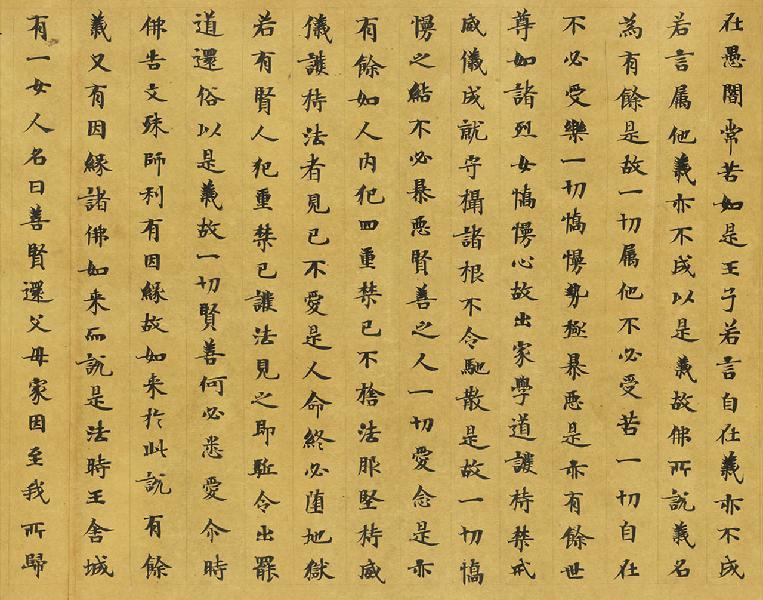 在愚闇常苦如是王子若言自在義亦不成
若言属他義亦不成以是義故佛所説義名
為有餘是故一切属他不必受苦一切自在
不必受樂一切憍慢勢極暴悪是亦有餘世
尊如諸烈女憍慢心故出家學道護持禁戒
威儀成就守攝諸根不令馳散是故一切憍
慢之結不必暴悪賢善之人一切愛念是亦
有餘如人内犯四重禁已不捨法服堅持威
儀護持法者見已不愛是人命終必堕地獄
若有賢人犯重禁已護法見之即駈令出罷
道還俗以是義故一切賢善何必悉愛尒時
佛告文殊師利有因縁故如来於此説有餘
義又有因縁諸佛如来而説是法時王舎城
有一女人名曰善賢還父母家因至我所歸